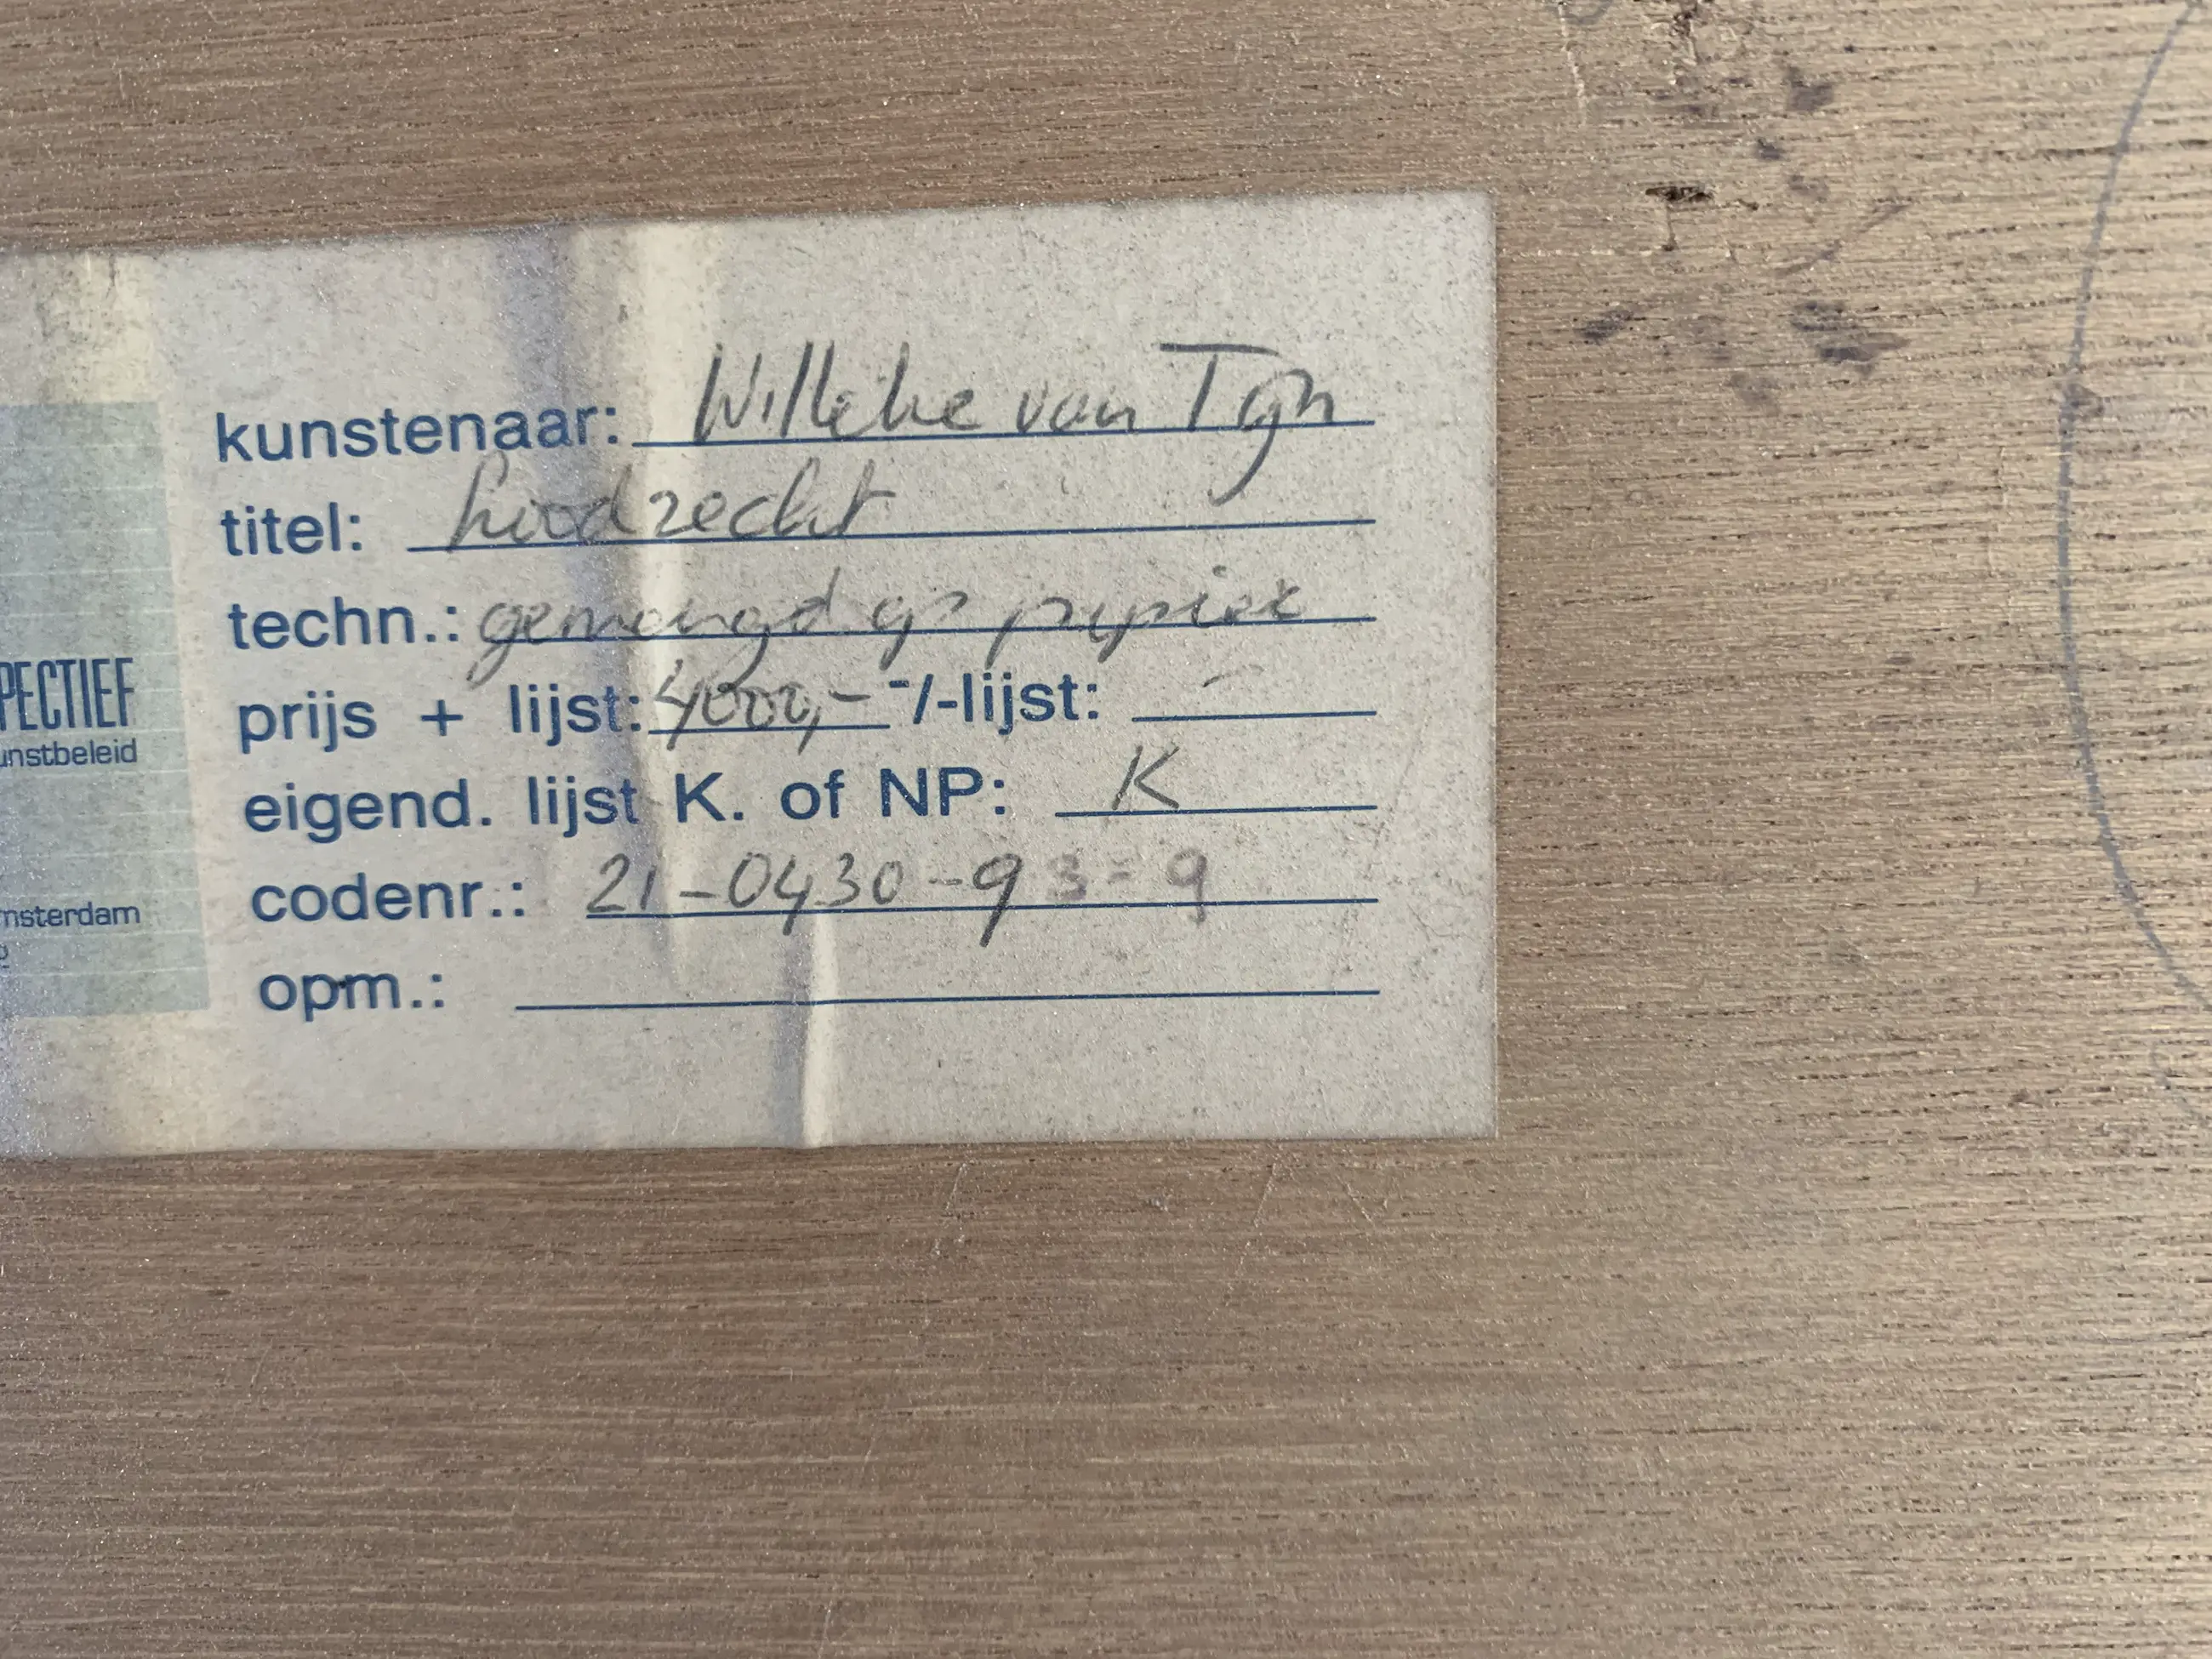 kunstenaar: Willeke van Tijn
titel: Loodrecht
techn.: gemengd op papier
PECTIEF
prijs + lijst: 4000,- -/-lijst: -
unstbeleid
eigend. lijst K. of NP: K
codenr.: 21-0430-93-9
msterdam
opm.: